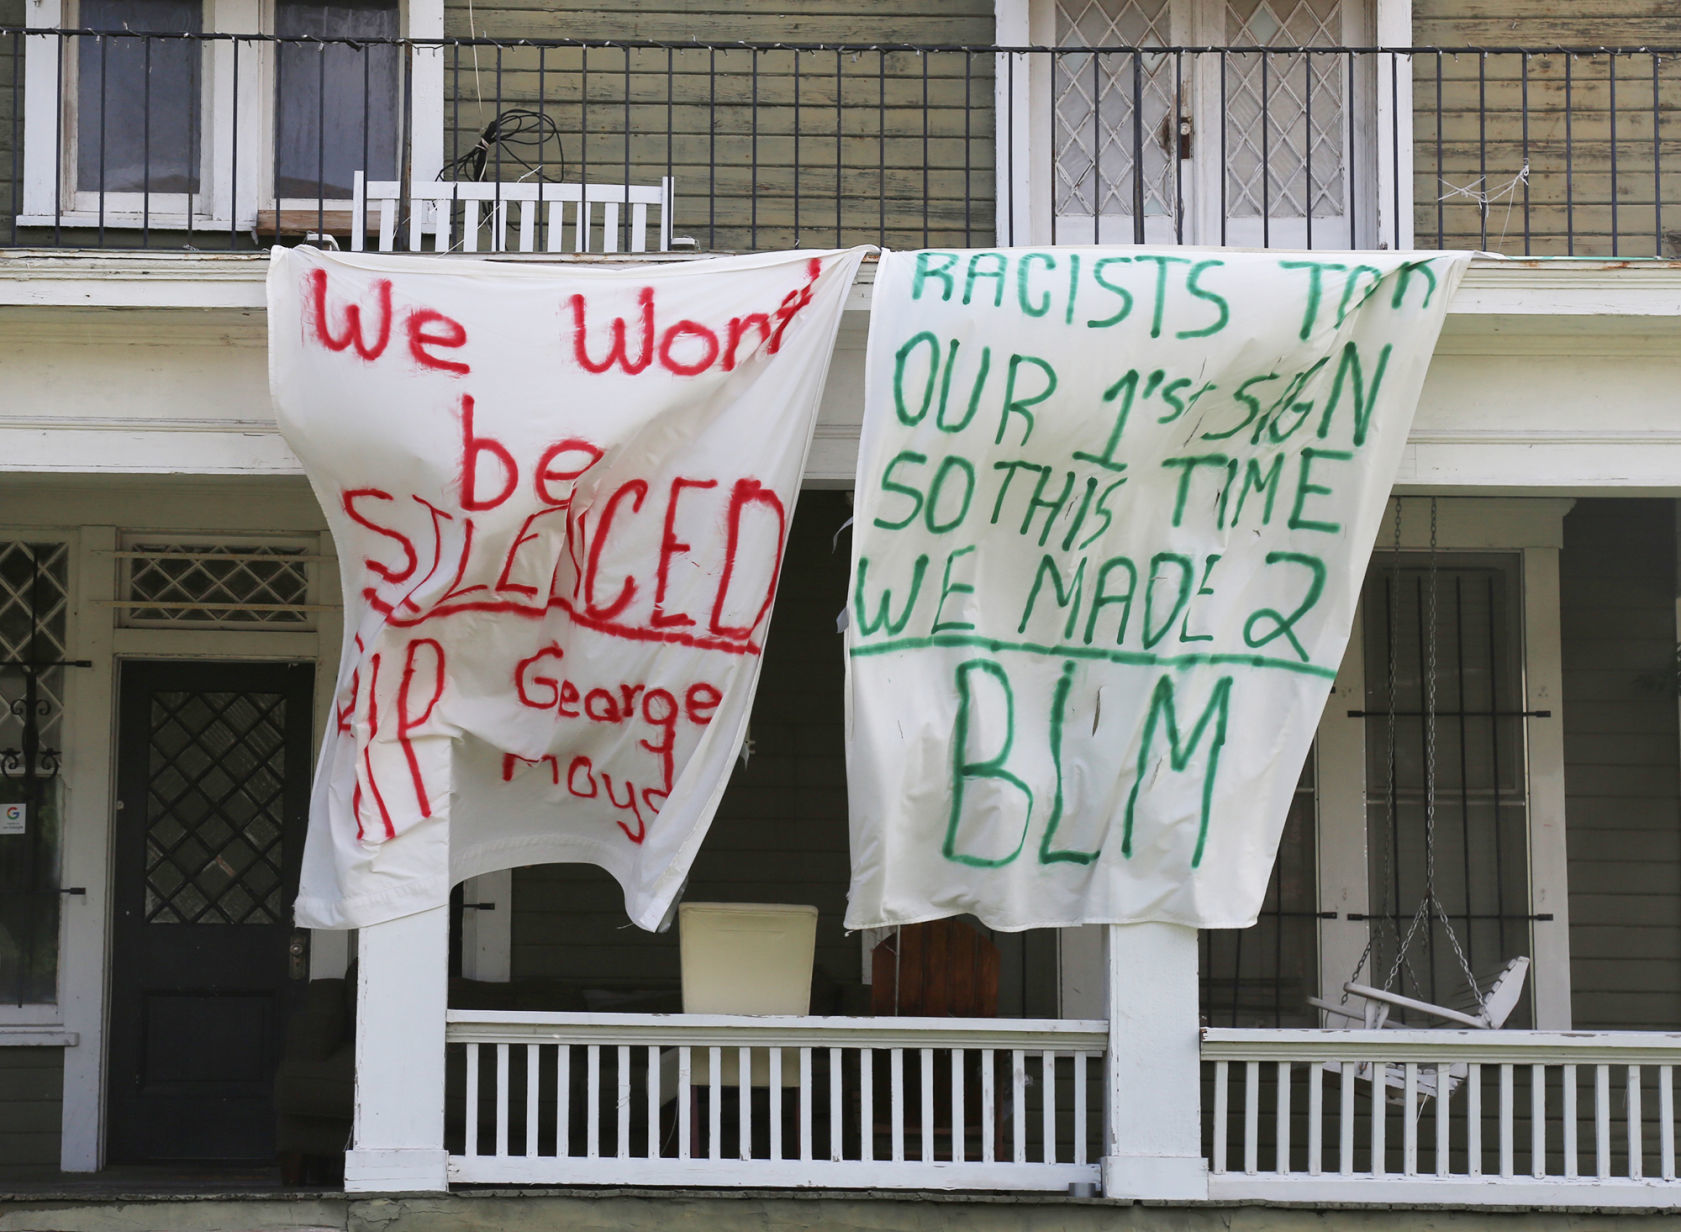 We Won't
be
SILENCED
RIP George
Floyd
RACISTS TOOK
OUR 1'st SIGN
SO THIS TIME
WE MADE 2
BLM